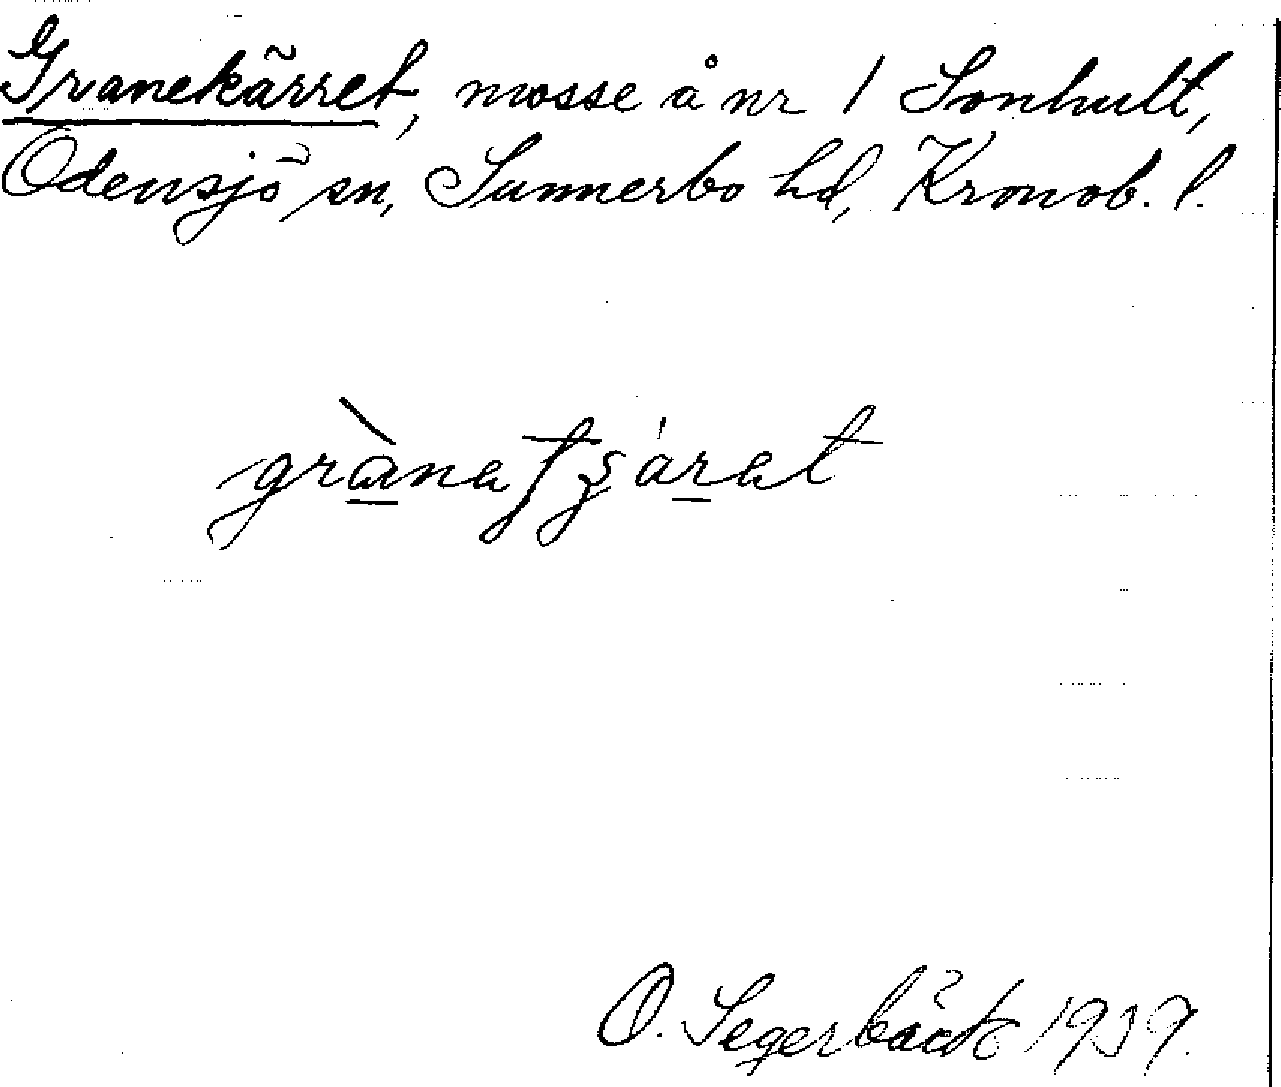 Granekärret, mosse å nr 1 Sonhult,
Odensjö sn, Sunnerbo hd, Kronob. l.
O. Segerbäck 1939.